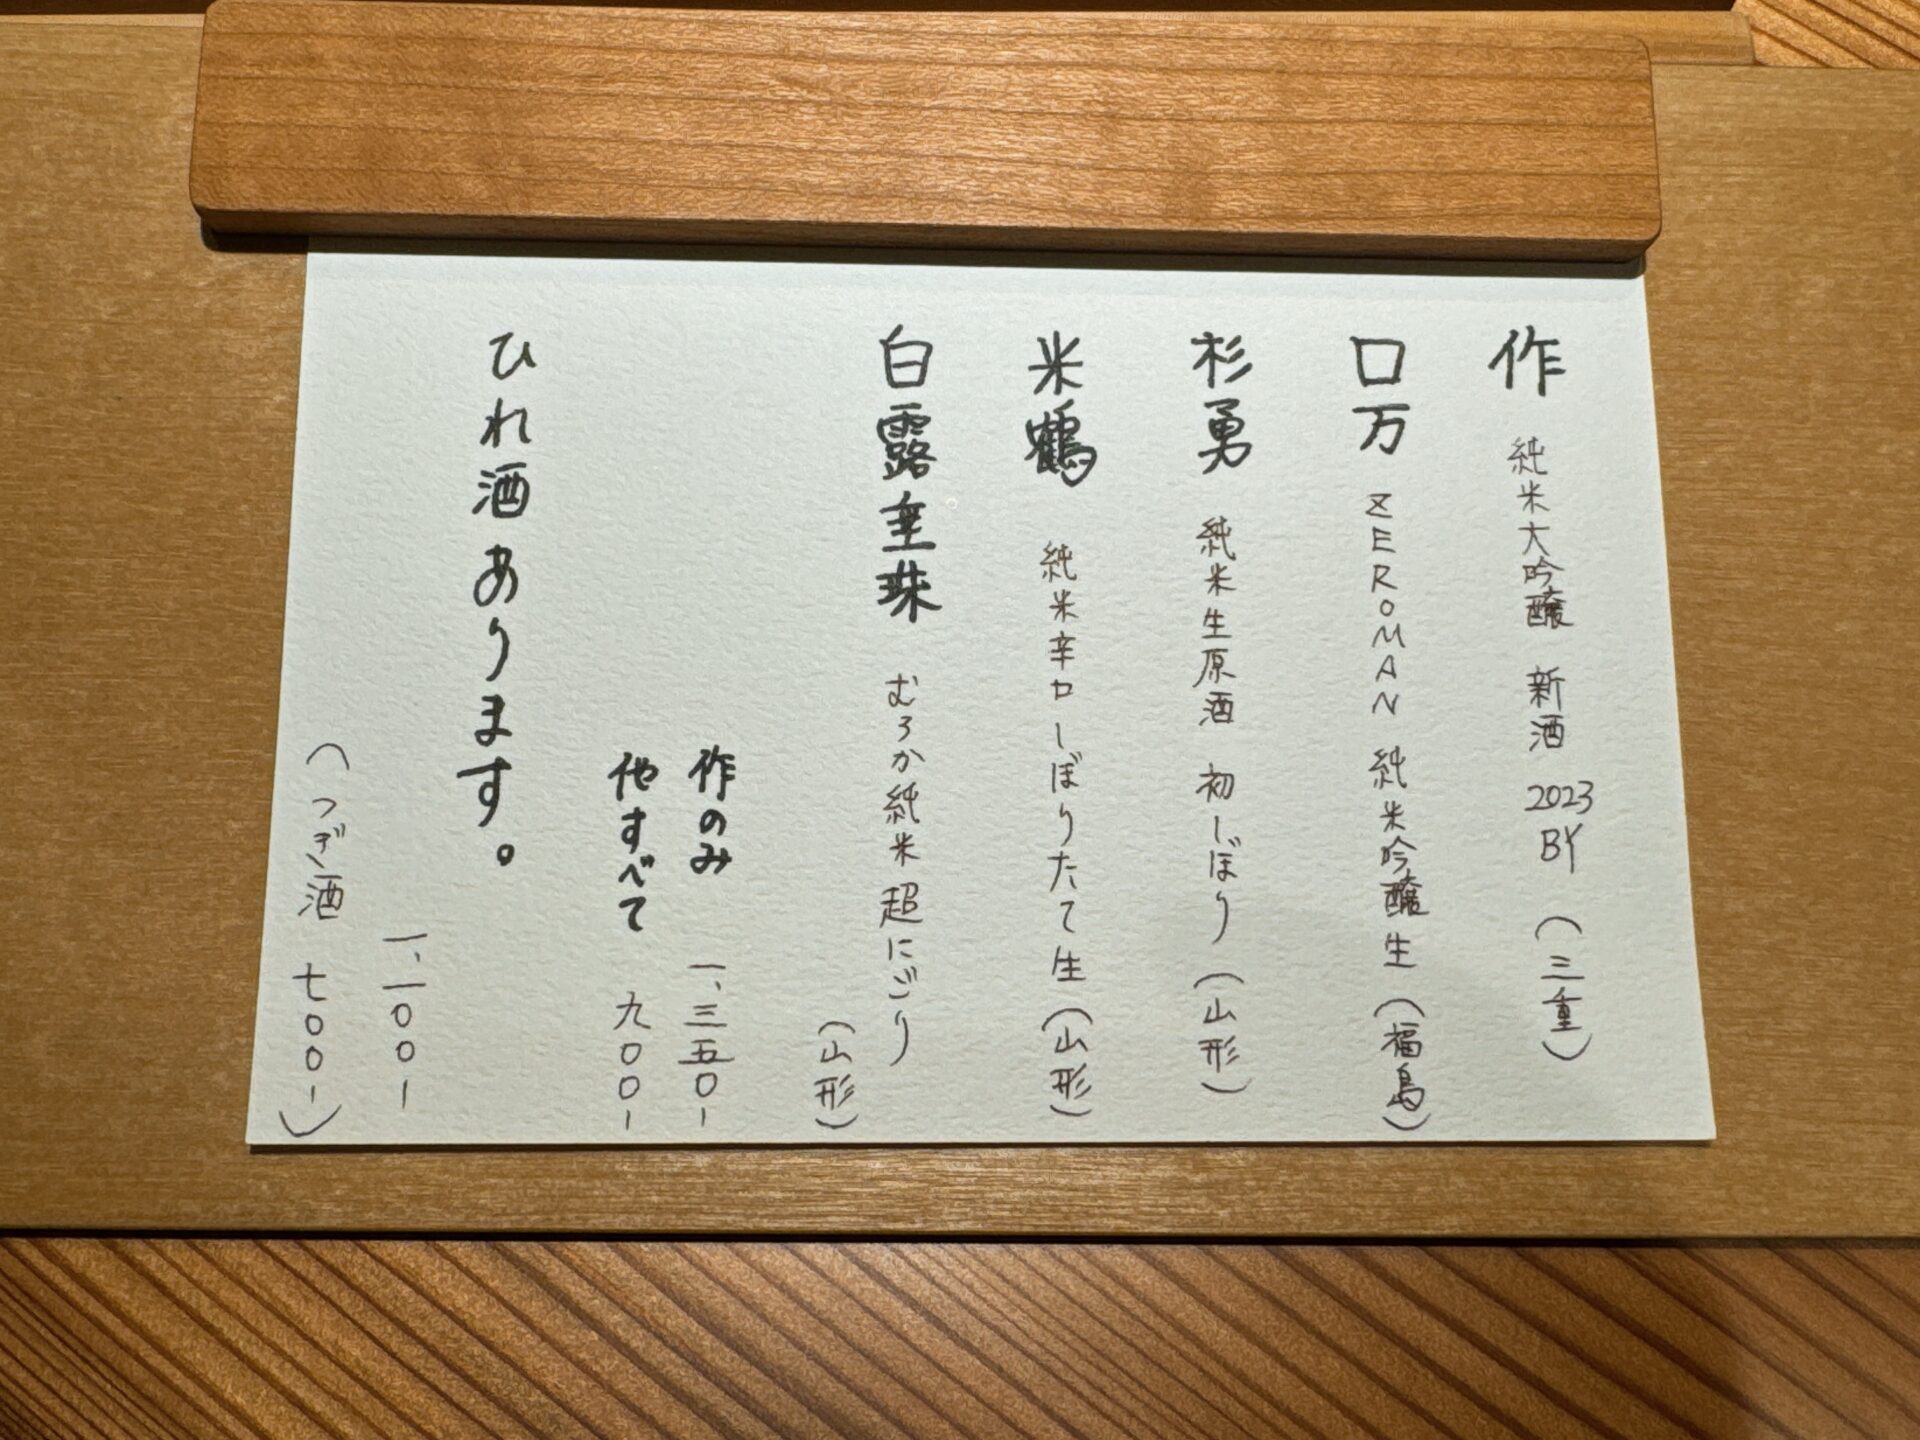 作 純米大吟醸 新酒 2023 BY (三重)
口万 ZEROMAN 純米吟醸生 (福島)
杉勇 純米生原酒 初しぼり (山形)
米鶴 純米辛口しぼりたて生 (山形)
白露垂珠 むろか純米 超にごり
(山形)
作のみ 一、三五〇-
他すべて 九〇〇-
ひれ酒あります。
一、一〇〇-
(つぎ酒 七〇〇-)